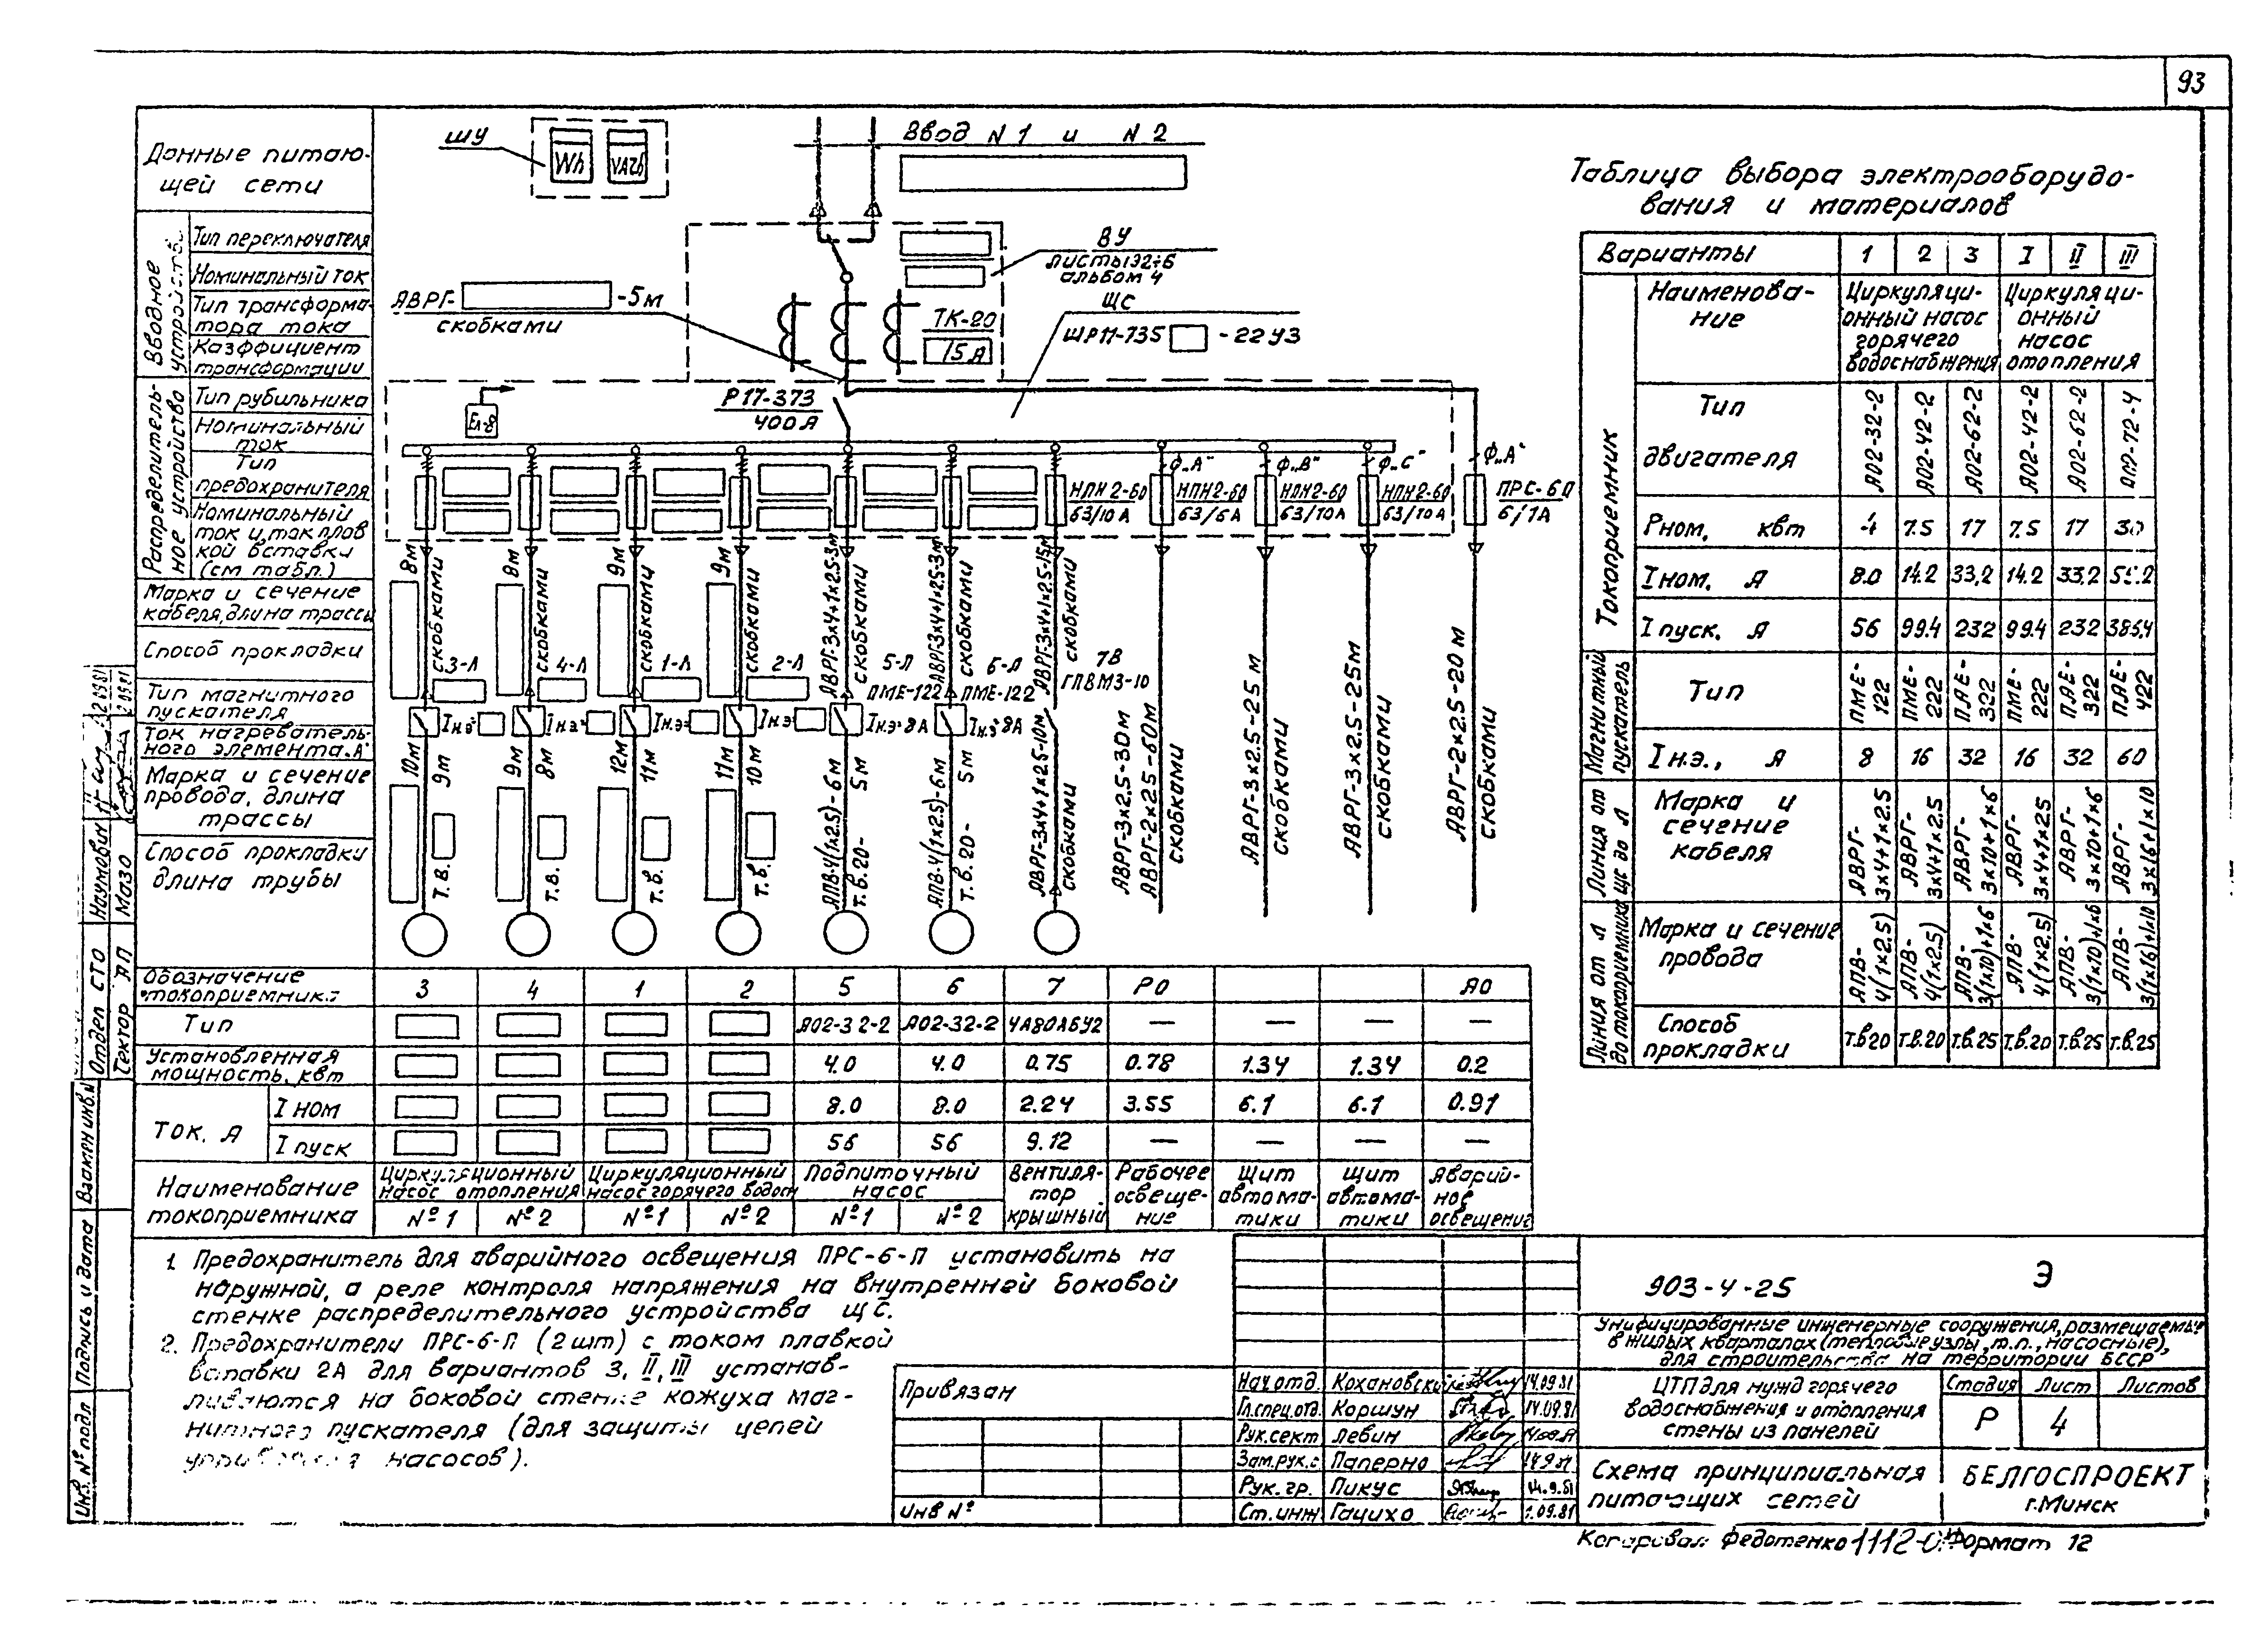 93
Данные питаю-
щей сети
Вводное устройство
Тип переключателя
Номинальный ток
Тип трансформа-
тора тока
Коэффициент
трансформации
Распределитель-
ное устройство
Тип рубильника
Номинальный
ток
Тип
предохранителя
Номинальный
ток и ток плав
кой вставки
(см табл.)
Марка и сечение
кабеля, длина трассы
Способ прокладки
Тип магнитного
пускателя
Ток нагреватель-
ного элемента. А
Марка и сечение
провода, длина
трассы
Способ прокладки
длина трубы
ШУ
Wh
VAZh
Ввод N 1 и N 2
ВУ
альбом 4
ЩС
ШР11-735 -22 У3
АВРГ- -5м
скобками
ТК-20
15 А
Р17-373
400А
Ел-8
ф„А" ф„В" ф„С" ф„А"
НПН 2-60 НПН2-60 НПН2-60 НПН2-60 ПРС-60
63/10 А 63/6А 63/10А 63/10А 6/1А
8м скобками 3-Л
8м скобками 4-Л
9м скобками 1-Л
9м скобками 2-Л
АВРГ-3х4+1х2.5-3м скобками 5-Л
АВРГ-3х4+1х2.5-3м скобками 6-Л
АВРГ-3х4+1х2.5-15м скобками 7В
ПМЕ-122 ПМЕ-122 ГПВМ3-10
Iн.э= Iн.э= Iн.э= Iн.э= Iн.э=8А Iн.э=8А
10м 9м т.в.
9м 8м т.в.
12м 11м т.в.
11м 10м т.в.
АПВ-4(1х2.5)-6м т.в.20- 5м
АПВ-4(1х2.5)-6м т.в.20- 5м
АВРГ-3х4+1х2.5-10м скобками
АВРГ-3х2.5-30м
АВРГ-2х2.5-60м скобками
АВРГ-3х2.5-25м скобками
АВРГ-3х2.5-25м скобками
АВРГ-2х2.5-20м скобками
Обозначение
токоприемник. 3 4 1 2 5 6 7 РО АО
Тип А02-32-2 А02-32-2 4А80А6У2 — — — —
Установленная
мощность, квт 4.0 4.0 0.75 0.78 1.34 1.34 0.2
Ток, А
I ном 8.0 8.0 2.24 3.55 6.1 6.1 0.91
I пуск 56 56 9.12 — — — —
Наименование
токоприемника
Циркуляционный
насос отопления
№1 №2
Циркуляционный
насос горячего водосн
№1 №2
Подпиточный
насос
№1 №2
Вентиля-
тор
крышный
Рабочее
освеще-
ние
Щит
автома-
тики
Щит
автома-
тики
Аварий-
ное
освещение
Таблица выбора электрооборудо-
вания и материалов
Варианты 1 2 3 I II III
Токоприемник
Наименова-
ние
Циркуляци-
онный насос
горячего
водоснабжения
Циркуляци-
онный
насос
отопления
Тип
двигателя
А02-32-2 А02-42-2 А02-62-2 А02-42-2 А02-62-2 А02-72-4
Рном, квт 4 7.5 17 7.5 17 30
Iном. А 8.0 14.2 33,2 14.2 33,2
Iпуск. А 56 99.4 232 99.4 232 386,4
Магнитный пускатель
Тип ПМЕ-122 ПМЕ-222 ПАЕ-322 ПМЕ-222 ПАЕ-322 ПАЕ-422
Iн.э., А 8 16 32 16 32 60
Линия от ЩС до Л
Марка и
сечение
кабеля
АВРГ-3х4+1х2.5 АВРГ-3х4+1х2.5 АВРГ-3х10+1х6 АВРГ-3х4+1х2.5 АВРГ-3х10+1х6 АВРГ-3х16+1х10
Линия от Л до токоприемника
Марка и сечение
провода
АПВ-4(1х2.5) АПВ-4(1х2.5) АПВ-3(1х10)+1х6 АПВ-4(1х2.5) АПВ-3(1х10)+1х6 АПВ-3(1х16)+1х10
Способ
прокладки
т.в20 т.в.20 т.в.25 т.в.20 т.в25 т.в.25
1. Предохранитель для аварийного освещения ПРС-6-П установить на
наружной, а реле контроля напряжения на внутренней боковой
стенке распределительного устройства ЩС.
2. Предохранители ПРС-6-П (2шт) с током плавкой
вставки 2А для вариантов 3, II, III устанав-
ливаются на боковой стенке кожуха маг-
нитного пускателя (для защиты цепей
управления насосов).
Привязан
Инв №
Нач.отд. Кохановский 14.09.81
Гл.спец.отд. Коршун 14.09.81
Рук.сект Левин
Зам.рук.с Паперно
Рук. гр. Пикус 14.9.81
Ст.инж Гацихо
903-4-25 Э
Унифицированные инженерные сооружения, размещаемые
в жилых кварталах (тепловые узлы, т.п., насосные),
для строительства на территории БССР
ЦТП для нужд горячего
водоснабжения и отопления
стены из панелей
Стадия Лист Листов
Р 4
Схема принципиальная
питающих сетей
БЕЛГОСПРОЕКТ
г.Минск
Копировал Федотенко Формат 12
Отдел СТО Наумович
Сектор АП Мазо
Взаимн инв.№
Подпись и дата
Инв. № подл